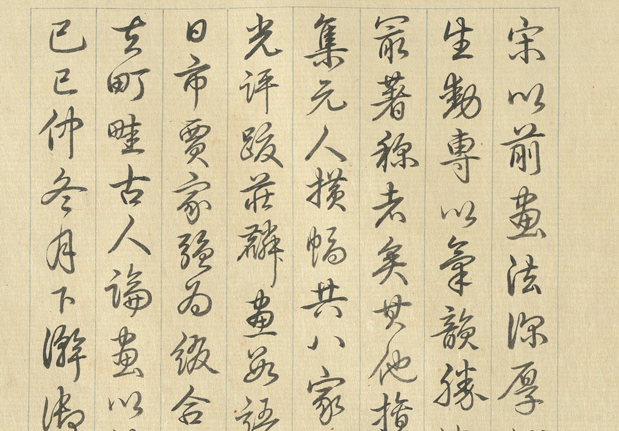 宋以前畫法深厚
生動專以氣韻勝
最著稱者矣其他
集元人橫幅共八家
光評跋莊麟畫款語
日市賈家強為綴合
去町畦古人論畫以
己巳仲冬月下澣